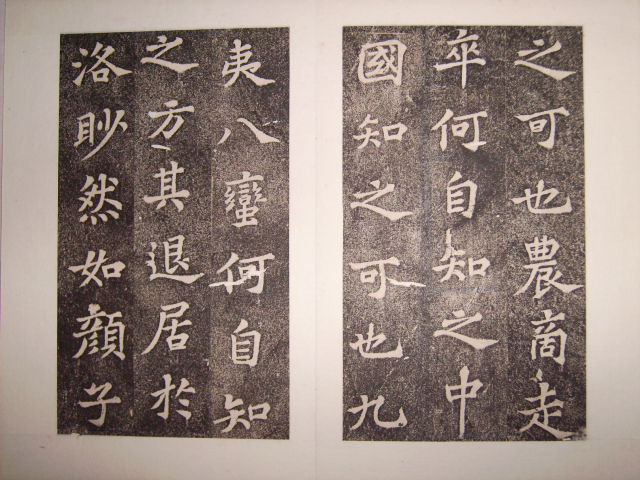 之可也農商走
卒何自知之中
國知之可也九
夷八蠻何自知
之方其退居於
洛眇然如顔子